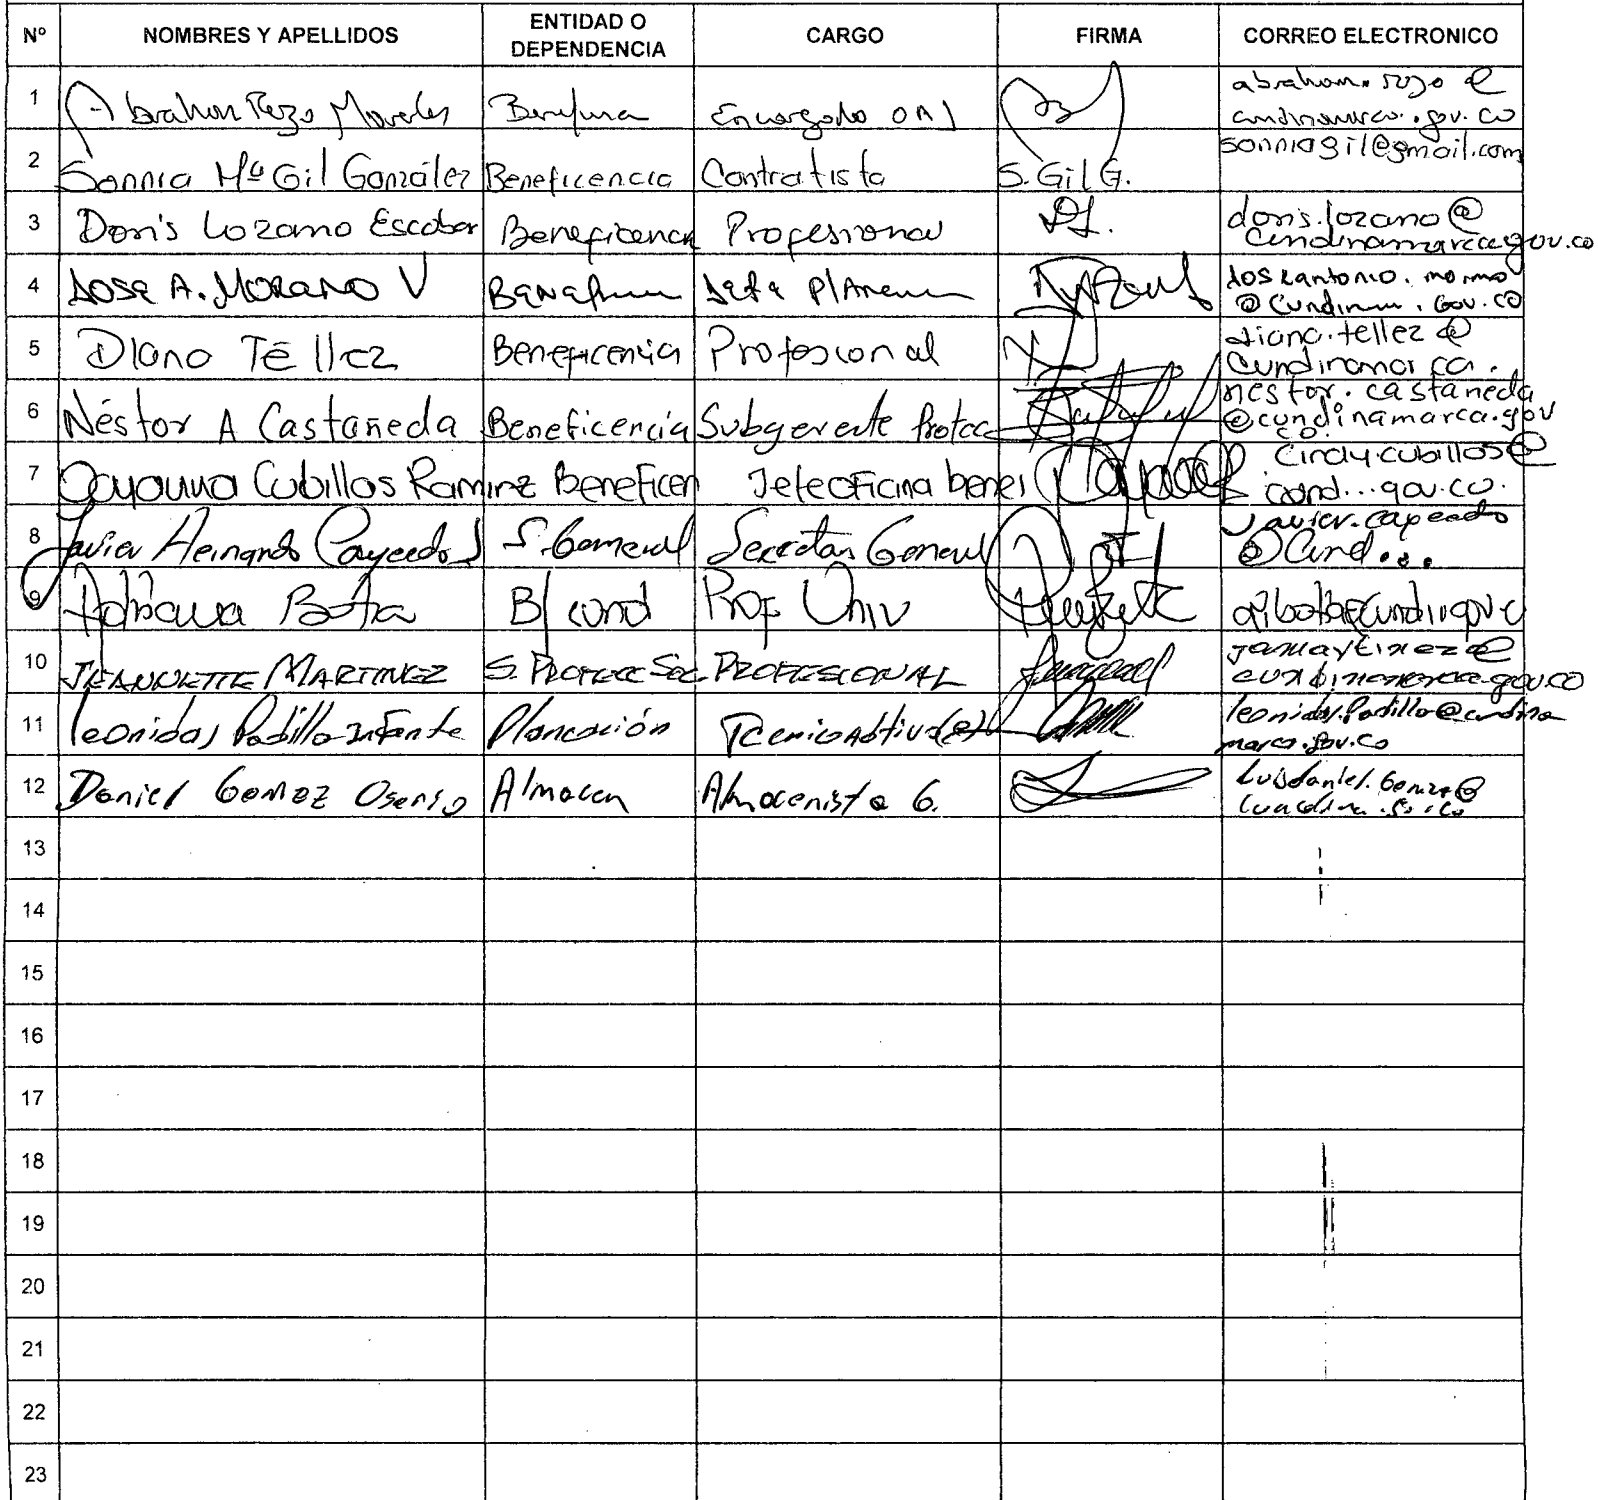 Nº NOMBRES Y APELLIDOS ENTIDAD O DEPENDENCIA CARGO FIRMA CORREO ELECTRONICO
1 Abraham Rozo Morales Encargado OAJ abraham.rozo@
2 Sonnia Mª Gil González Beneficencia Contratista S. Gil G. sonniagil@gmail.com
3 Doris Lozano Escobar Beneficencia Profesional doris.lozano@
cundinamarca.gov.co
4 Jose A. Moreno V
5 Diana Téllez Beneficencia Profesional diana.tellez@
cundinamarca.
6 Néstor A Castañeda Beneficencia Subgerente Protec nestor.castaneda
@cundinamarca.gov
co.
7 Cubillos Ramirez Beneficen Jefe oficina cindy.cubillos@
cund...gov.co.
8 Javier Hernando Caycedo S. General Secretario General javier.caycedo
@Cund...
9 Adriana B/ cund Prof Univ
10 JEANNETTE MARTINEZ S. PROTECC SOC PROFESIONAL jamartinez@
cundinamarca.gov.co
11 Leonidas Padilla Infante Planeación leonidas.Padilla@cundina
marca.gov.co
12 Daniel Gomez Osorio Almacen Almacenista G.
13
14
15
16
17
18
19
20
21
22
23